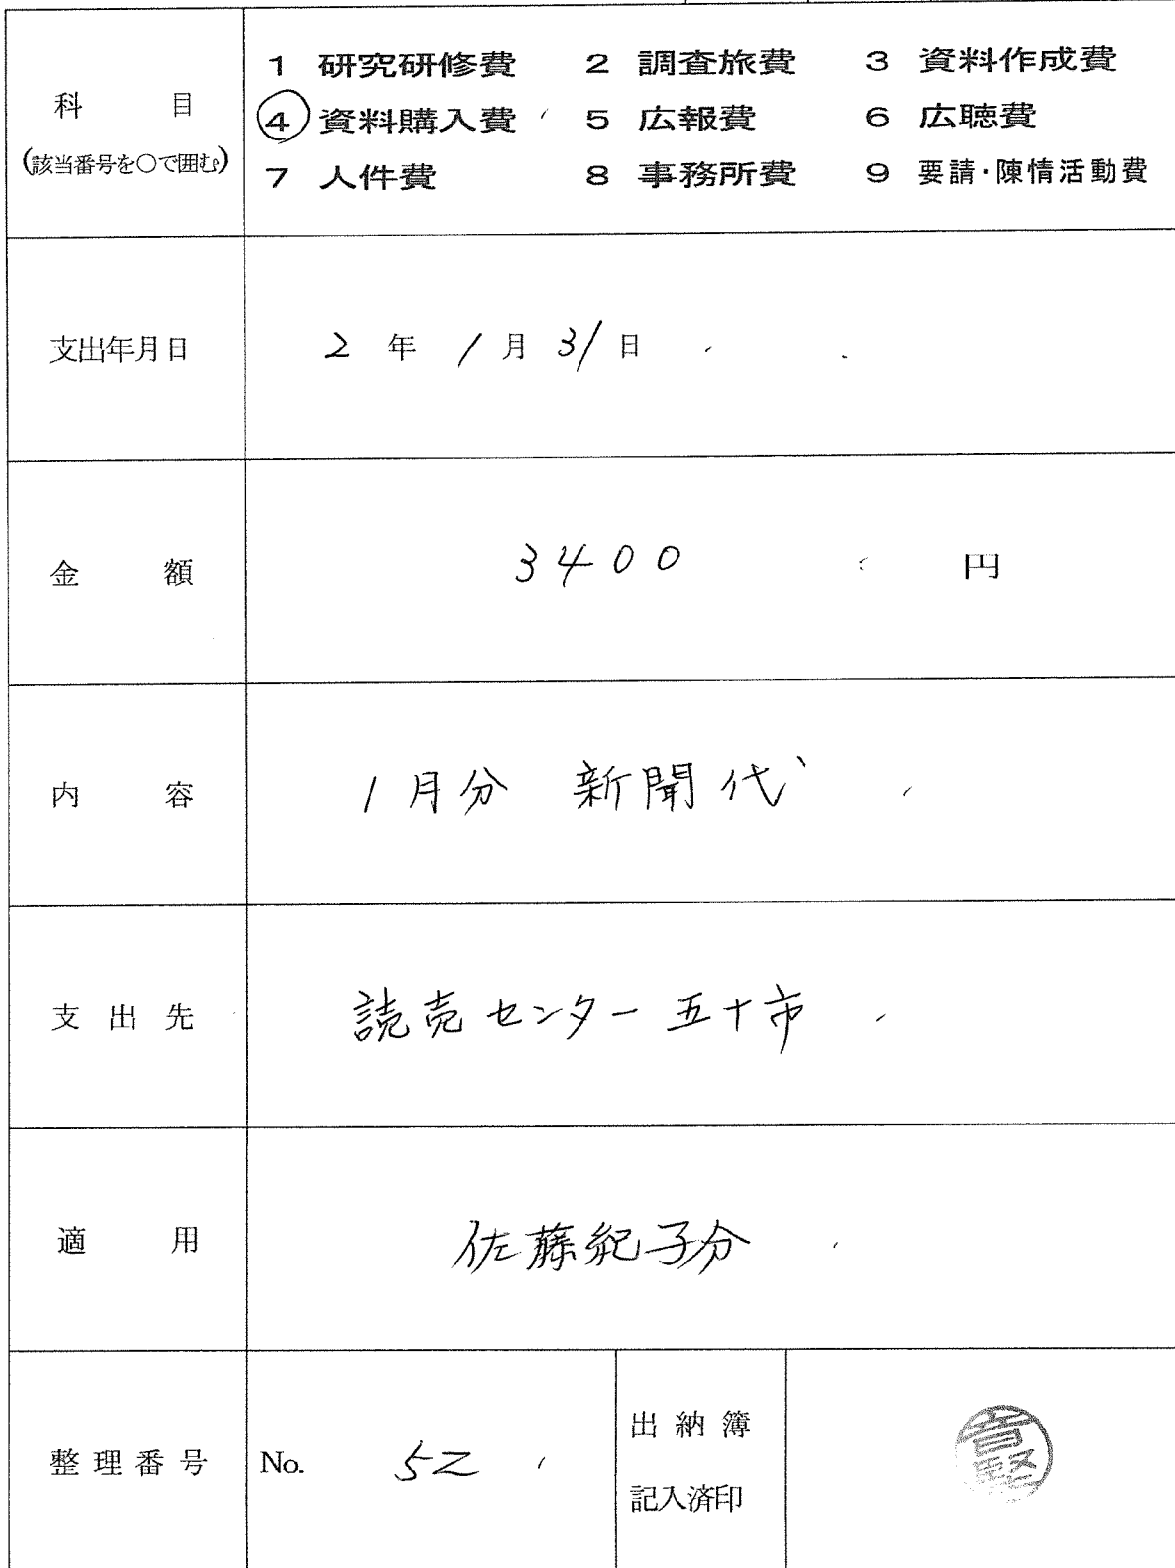 科 目
(該当番号を○で囲む)
1 研究研修費 2 調査旅費 3 資料作成費
4 資料購入費 5 広報費 6 広聴費
7 人件費 8 事務所費 9 要請・陳情活動費
支出年月日
2 年 1 月 31 日
金 額
3400 円
内 容
1月分 新聞代
支 出 先
読売センター五十市
適 用
佐藤紀子分
整 理 番 号
No. 52
出 納 簿
記入済印